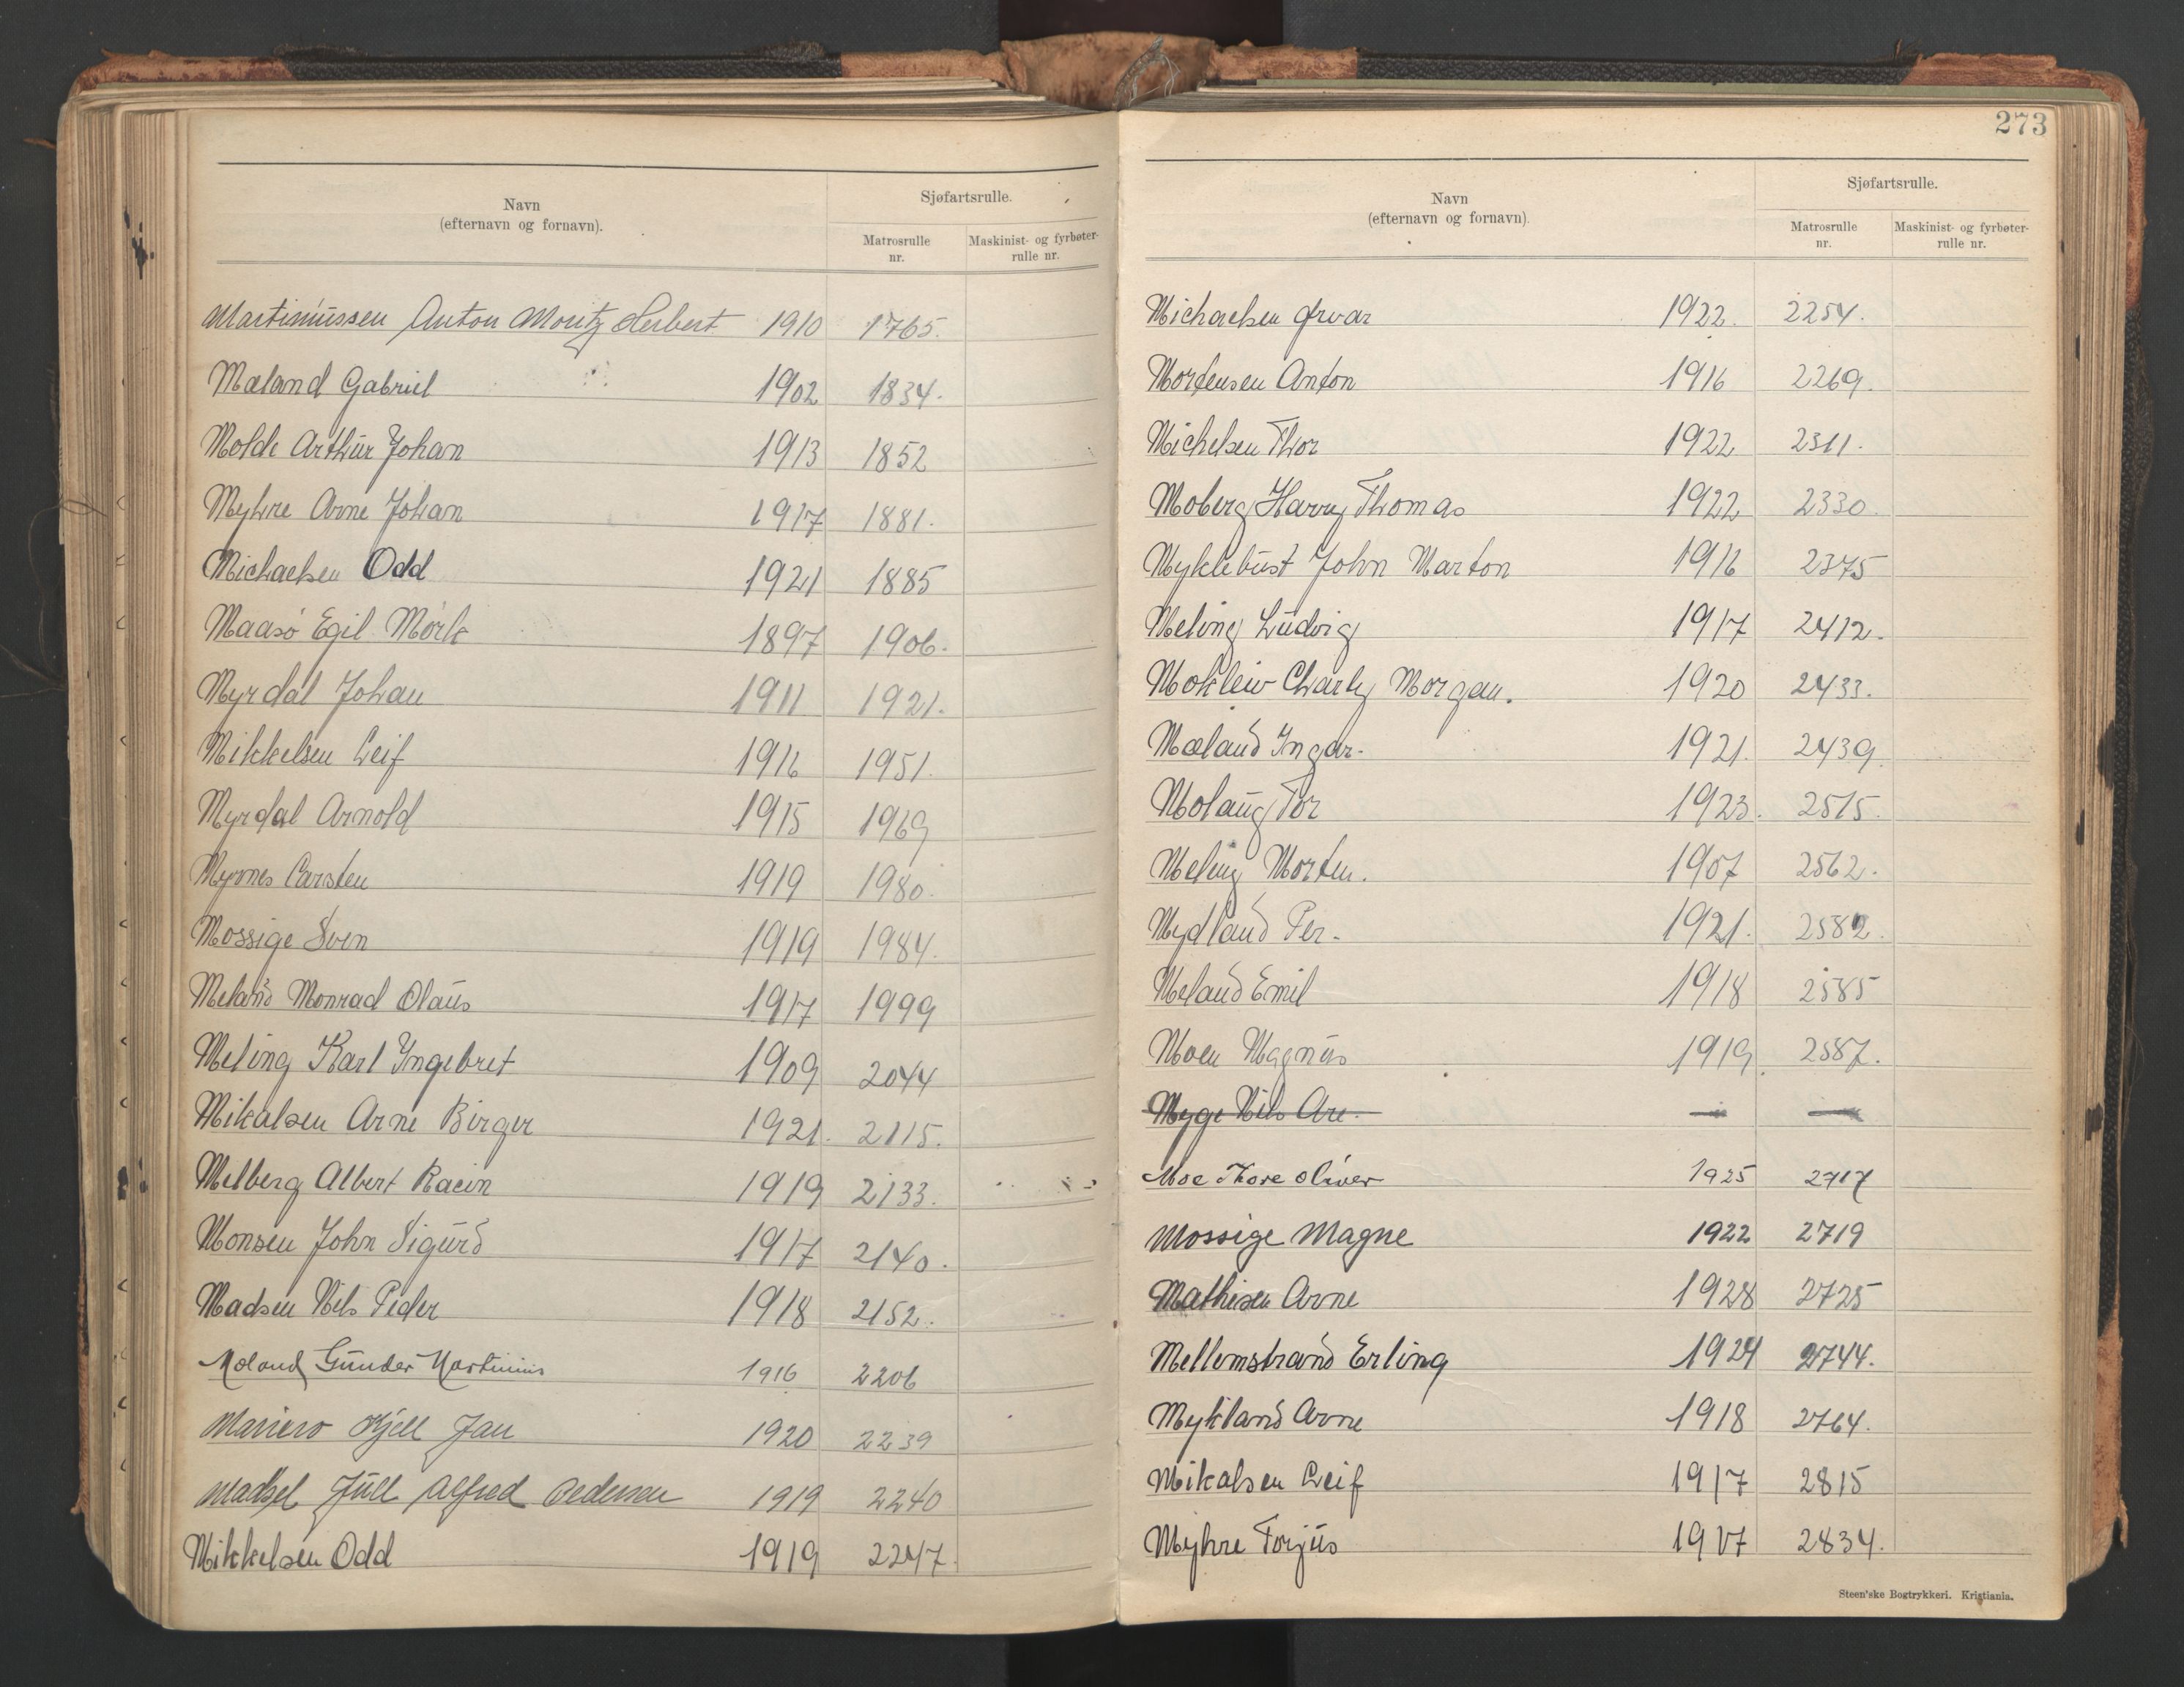 Navn
(efternavn og fornavn).
Sjøfartsrulle.
Matrosrulle nr.
Maskinist- og fyrbøter-rulle nr.
Martinüssen Anton Moritz Herbert 1910 1765.
Mæland Gabriel 1902 1834.
Molde Arthur Johan 1913 1852
Myhre Arne Johan 1917 1881.
Michaelsen Odd 1921 1885
Maasö Egil Mörk 1897 1906.
Myrdal Johan 1911 1921.
Mikkelsen Leif 1916 1951.
Myrdal Arnold 1915 1969
Myrnes Carsten 1919 1980.
Mossige Sven 1919 1984.
Meland Monrad Olaüs 1917 1999
Meling Karl Yngebret 1909 2044
Mikalsen Arne Birger 1921. 2115.
Melberg Albert Racin 1919 2133.
Monsen John Sigürd 1917 2140.
Madsen Nils Peder 1918 2152.
Moland Günder Martinius 1916 2206
Mariero Kjell Jan 1920 2239
Madsel Jüll Alfred Pedersen 1919 2240
Mikkelsen Odd 1919 2247.
273
Navn
(efternavn og fornavn).
Sjøfartsrulle.
Matrosrulle nr.
Maskinist- og fyrbøter-rulle nr.
Michaelsen Ørvar 1922. 2254.
Mortensen Anton 1916 2269.
Michelsen Thor 1922 2311.
Moberg Harry Thomas 1922 2330.
Myklebüst John Marton 1916 2375
Meling Lüdvig 1917 2412.
Mokleiv Charly Morgan. 1920 2433.
Mæland Yngar. 1921. 2439.
Molaüg Tor 1923. 2515.
Meling Morten. 1907 2562.
Mydland Per. 1921. 2582.
Meland Emil 1918 2585
Moen Magnüs 1919. 2587.
Myge Nils Are. — —
Moe Thore Oliver 1925 2717
Mossige Magne 1922 2719
Mathisen Arne 1928 2725
Mellemstrand Erling 1924 2744.
Mykland Arne 1918 2764.
Mikalsen Leif 1917 2815
Myhre Torjüs 1917 2834.
Steen'ske Bogtrykkeri. Kristiania.